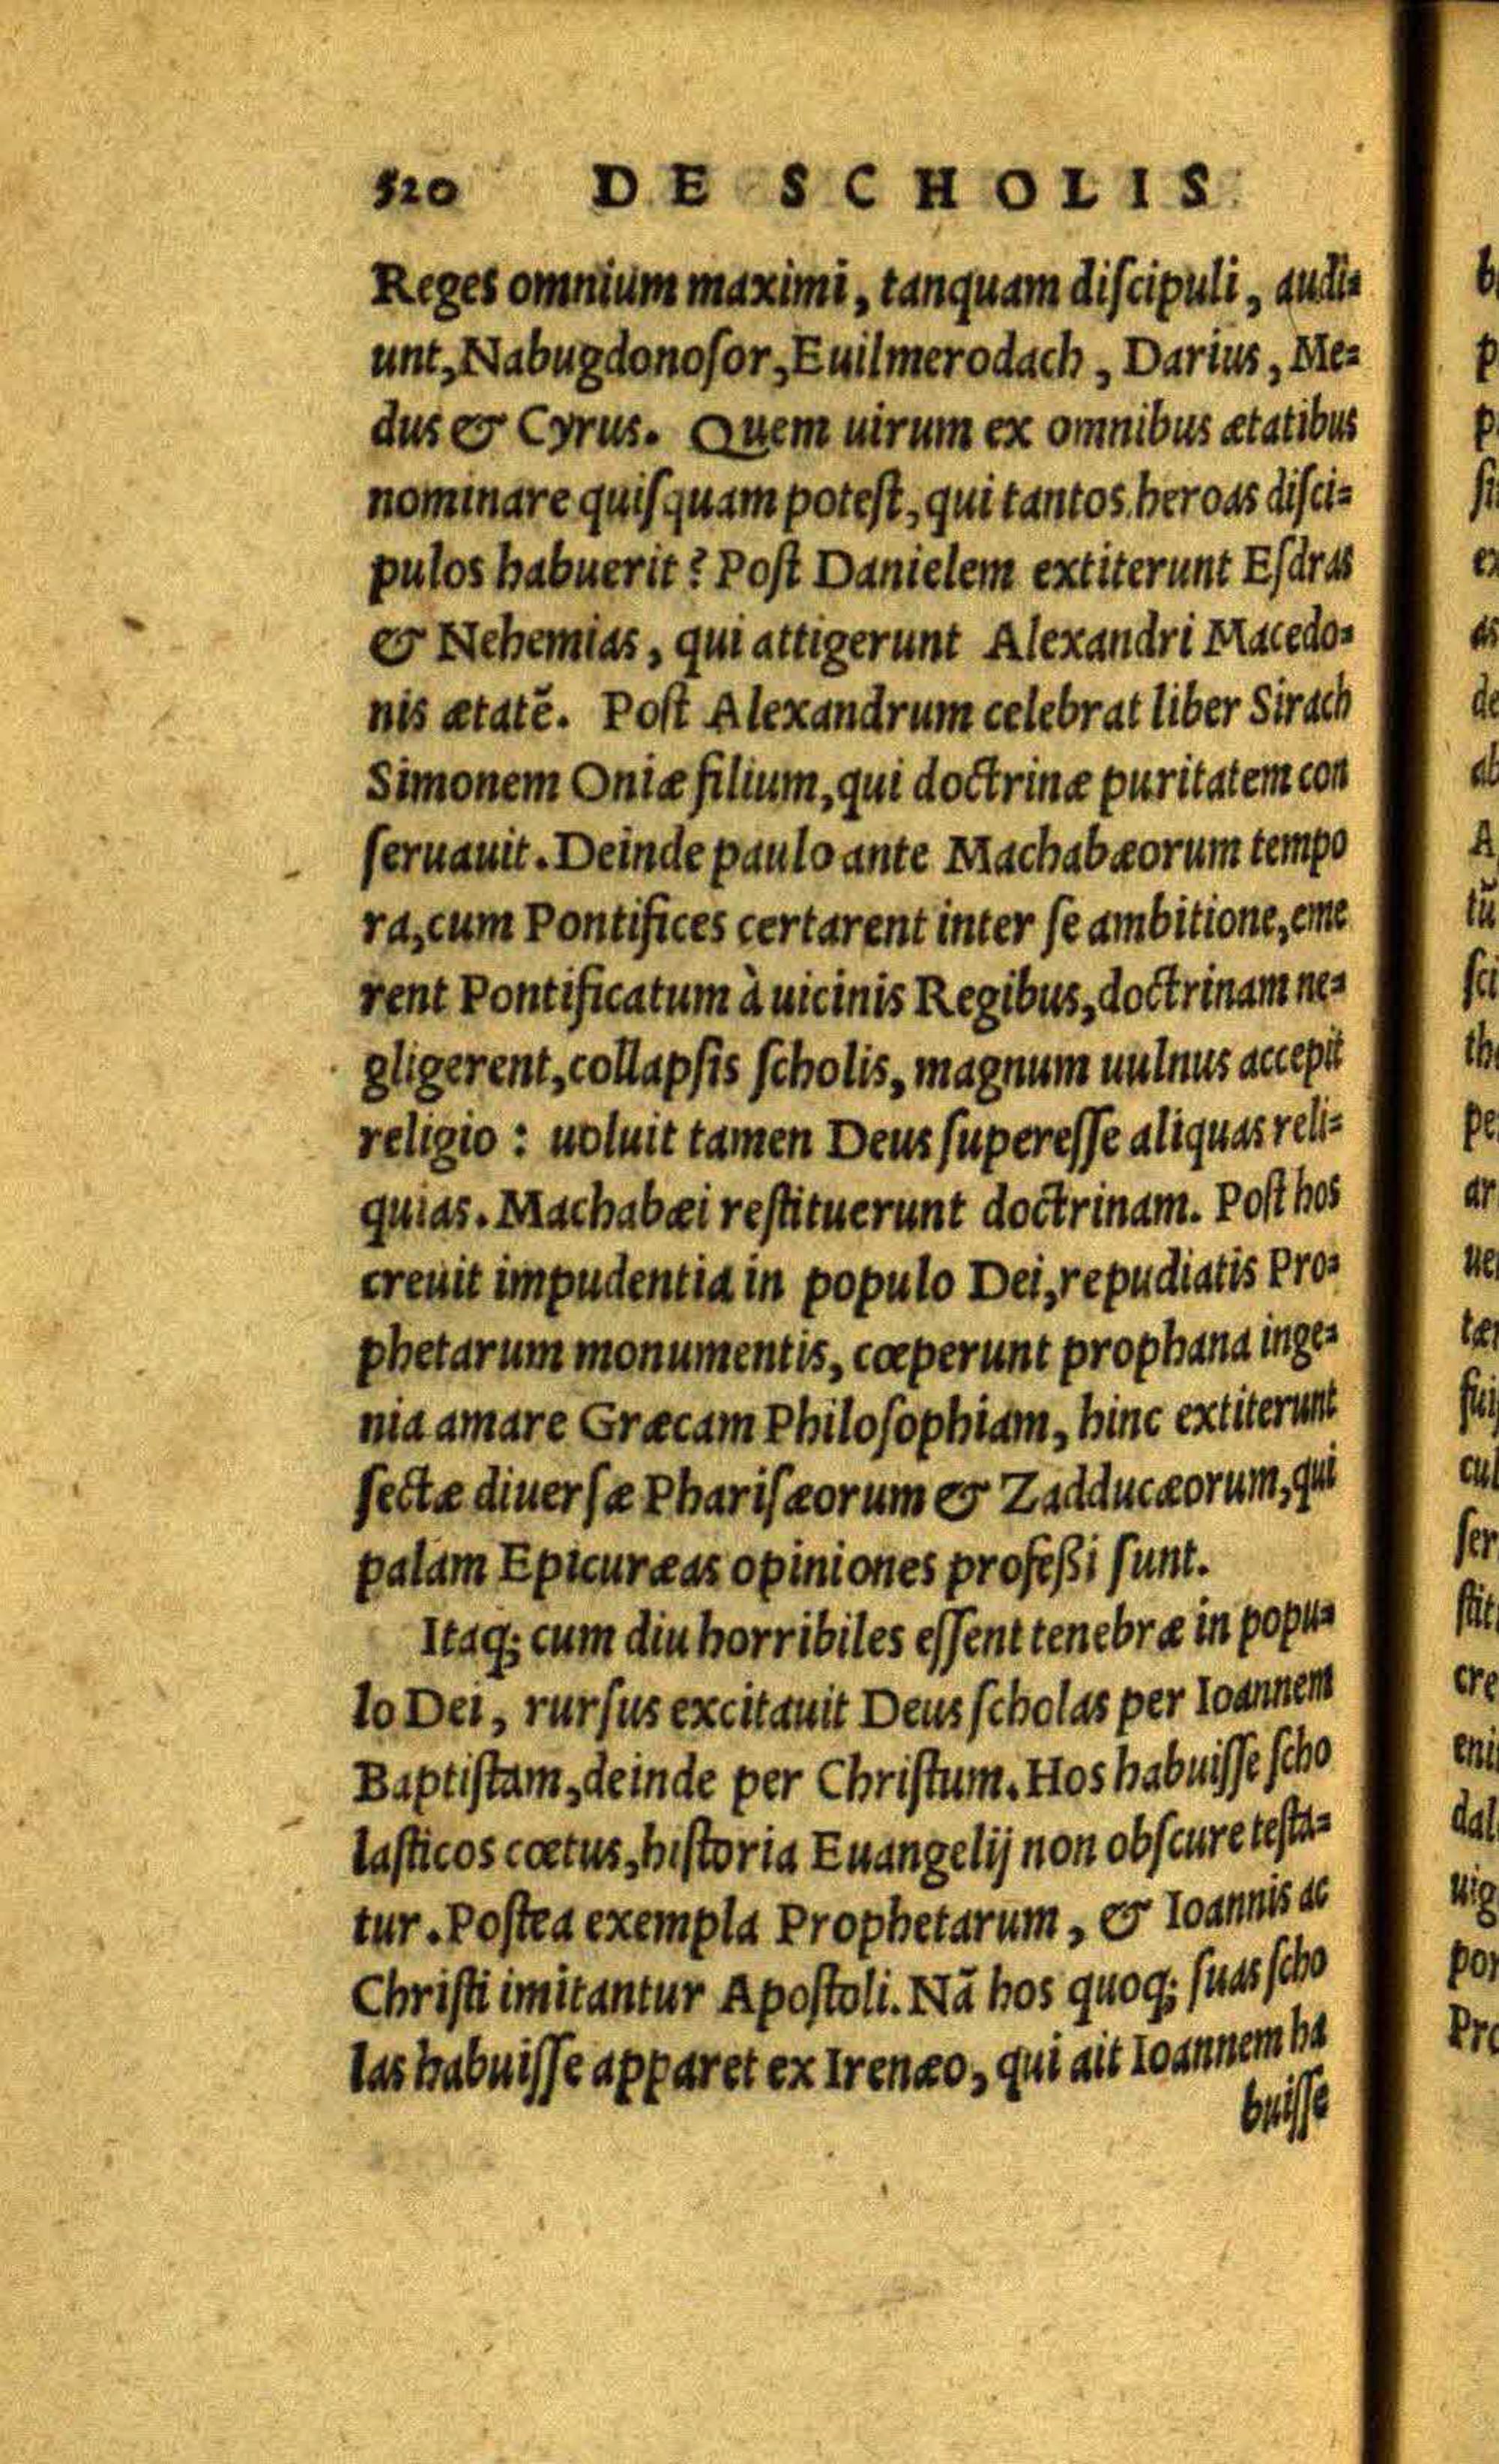 520 DE SCHOLIS
Reges omnium maximi, tanquam diſcipuli, audi=
unt, Nabugdonoſor, Euilmerodach, Darius, Me=
dus & Cyrus. Quem uirum ex omnibus ætatibus
nominare quiſquam poteſt, qui tantos heroas diſci=
pulos habuerit? Poſt Danielem extiterunt Eſdras
& Nehemias, qui attigerunt Alexandri Macedo=
nis ætatẽ. Poſt Alexandrum celebrat liber Sirach
Simonem Oniæ filium, qui doctrinæ puritatem con
ſeruauit. Deinde paulo ante Machabæorum tempo
ra, cum Pontifices certarent inter ſe ambitione, eme
rent Pontificatum à uicinis Regibus, doctrinam ne=
gligerent, collapſis ſcholis, magnum uulnus accepit
religio: uoluit tamen Deus ſupereſſe aliquas reli=
quias. Machabæi reſtituerunt doctrinam. Poſt hos
creuit impudentia in populo Dei, repudiatis Pro=
phetarum monumentis, cœperunt prophana inge=
nia amare Græcam Philoſophiam, hinc extiterunt
ſectæ diuerſæ Phariſæorum & Zadducæorum, qui
palàm Epicuræas opiniones profeßi ſunt.
Itaq; cum diu horribiles eſſent tenebræ in popu=
lo Dei, rurſus excitauit Deus ſcholas per Ioannem
Baptiſtam, deinde per Chriſtum. Hos habuiſſe ſcho
laſticos cœtus, hiſtoria Euangelij non obſcure teſta=
tur. Poſtea exempla Prophetarum, & Ioannis ac
Chriſti imitantur Apoſtoli. Nã hos quoq; ſuas ſcho
las habuiſſe apparet ex Irenæo, qui ait Ioannem ha
buiſſe